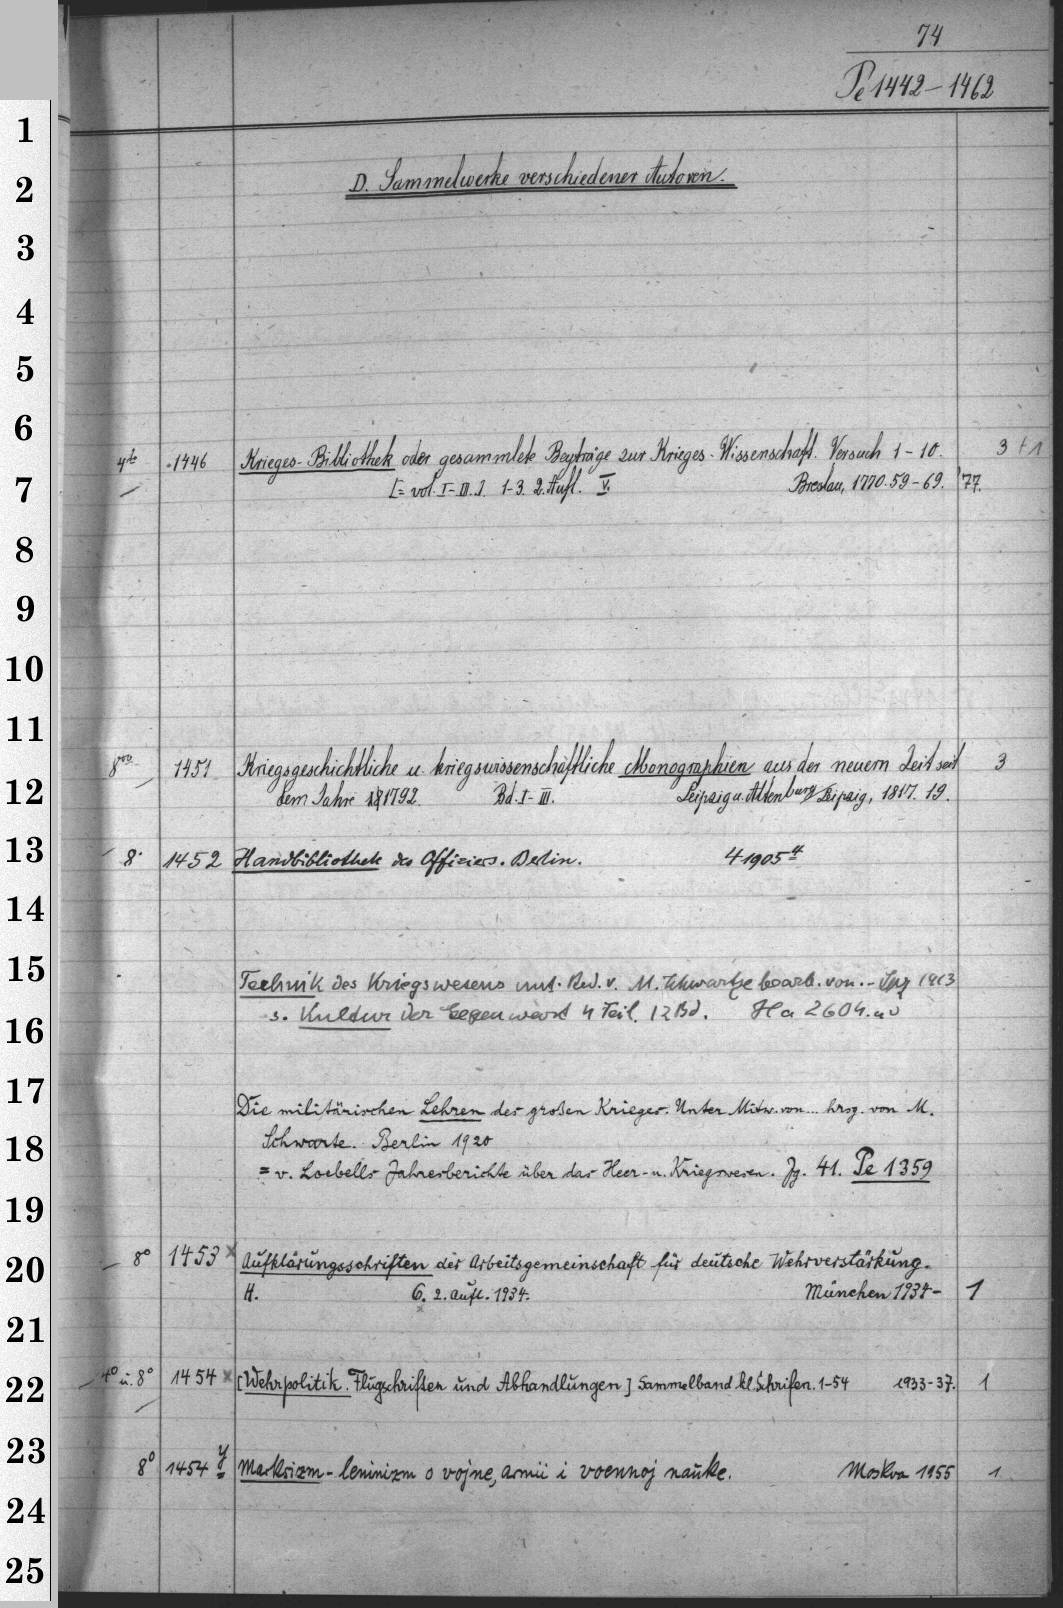 74
Pe 1442-1462
1
2
3
4
5
6
7
8
9
10
11
12
13
14
15
16
17
18
19
20
21
22
23
24
25
D. Sammelwerke verschiedener Autoren.
4to 1446 Krieges-Bibliothek oder gesammlete Beyträge zur Krieges-Wissenschaft. Versuch 1-10. 3 + 1
[= vol. I-III.]. 1-3. 2. Aufl. V. Breslau, 1770. 59-69. '77.
8vo 1451 Kriegsgeschichtliche u. kriegswissenschäftliche Monographien aus der neuern Zeit seit 3
dem Jahre 1792. Bd. I-III. Leipzig u. Altenburg Leipzig, 1817. 19.
8° 1452 Handbibliothek des Offiziers. Berlin. 4 1905 4
Technik des Kriegswesens unt. Red. v. M. Schwarte bearb. von.- Lpz 1913
s. Kultur der Gegenwart 4 Teil. 12 Bd. Ha 2604.
Die militärischen Lehren des großen Krieges. Unter Mitw. von... hrsg. von M.
Schwarte. Berlin 1920
= v. Loebells Jahresberichte über das Heer- u. Kriegswesen. Jg. 41. Pe 1359
8° 1453 x Aufklärungsschriften der Arbeitsgemeinschaft für deutsche Wehrverstärkung.
H. 6. 2. Aufl. 1934. München 1934- 1
x
4° u. 8° 1454 x [Wehrpolitik. Flugschriften und Abhandlungen] Sammelband kl. Schrifen. 1-54 1933-37. 1
8° 1454 y Marksizm-leninizm o vojne, armii i voennoj nauke. Moskva 1955 1